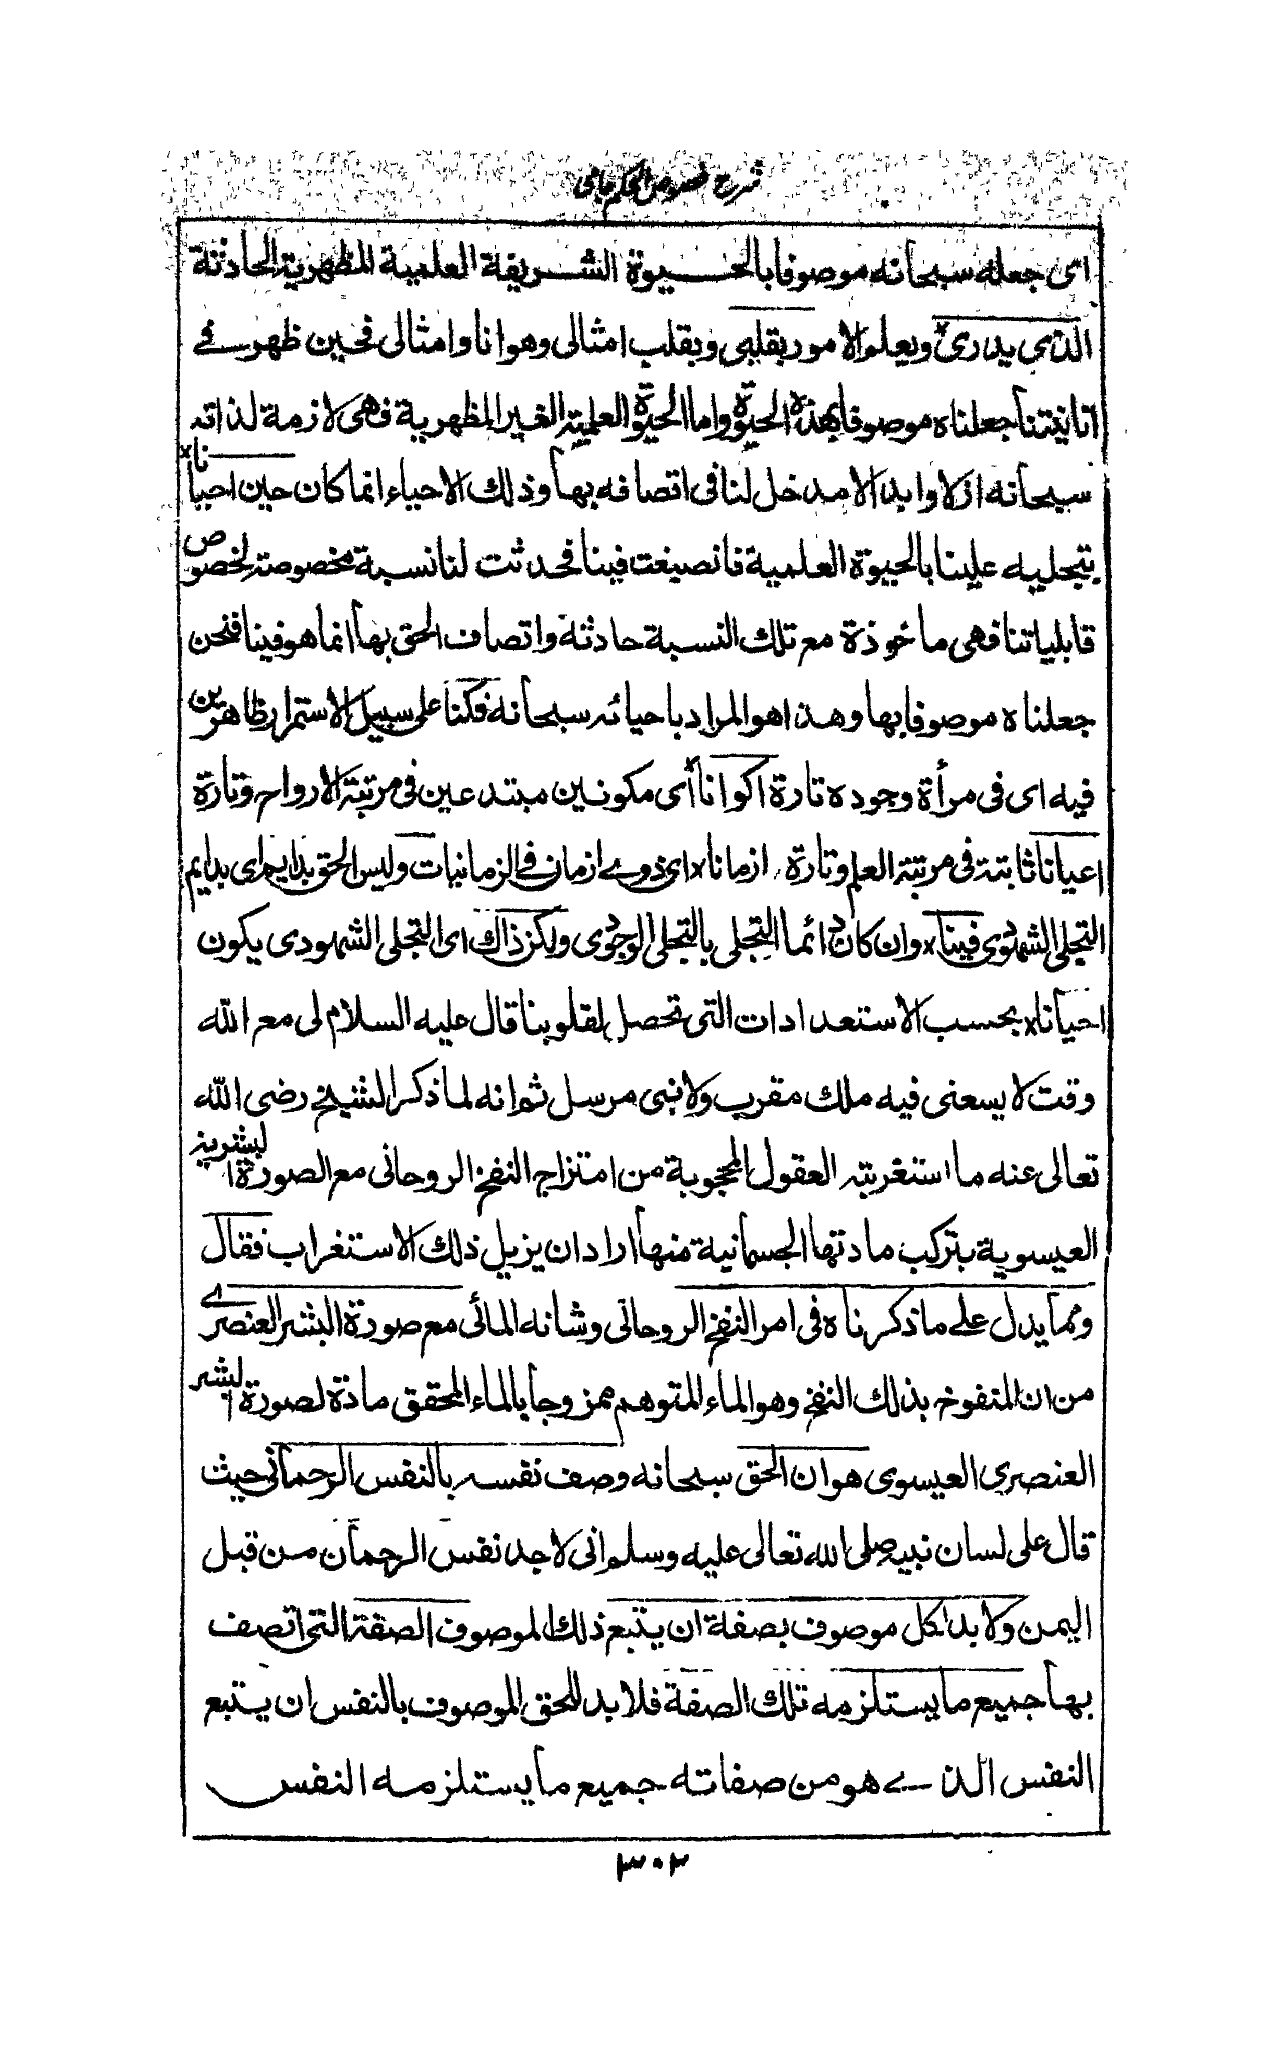 شرح فصوص الحكم جامى
اى جعله سبحانه موصوفا بالحيوة الشريفة العلمية المظهرية الحادثة
الذي يدرى ويعلم الامور بقلبى وبقلب امثالى وهو انا وامثالى فحين ظهر فے
انانيتنا جعلناه موصوفا بهذه الحيوة واما الحيوة العلمية الغير المظهرية فهى لازمة لذاته
سبحانه ازلا وابدا لا مدخل لنا فى اتصافه بها وذلك الاحياء انما كان حين احيانا
بتجليه علينا بالحيوة العلمية فانصبغت فينا فحدثت لنا نسبة مخصوصة لخصوص
قابلياتنا فهى ماخوذة مع تلك النسبة حادثة واتصاف الحق بها انما هو فينا فنحن
جعلناه موصوفا بها وهذا هو المراد باحيائه سبحانه فكنا على سبيل الاستمرار ظاهرين
فيه اى فى مرأة وجوده تارة اكوانا اى مكونين مبتدعين فى مرتبة الارواح وتارة
اعيانا ثابتة فى مرتبة العلم وتارة ازمانا اى ذوے ازمان فے الزمانيات وليس الحق بدايم اى بدايم
التجلى الشهودى فينا وان كان دائما التجلى بالتجلى الوجودى ولكن ذاك اى التجلى الشهودى يكون
احيانا بحسب الاستعدادات التى تحصل لقلوبنا قال عليه السلام لى مع الله
وقت لا يسعنى فيه ملك مقرب ولا نبى مرسل ثم انه لما ذكر الشيخ رضى الله
تعالى عنه ما استغربته العقول المحجوبة من امتزاج النفخ الروحانى مع الصورة البشرية
العيسوية بتركيب مادتها الجسمانية منها اراد ان يزيل ذلك الاستغراب فقال
ومما يدل علے ما ذكرناه فى امر النفخ الروحانى وشانه المائى مع صورة البشر العنصرے
من ان المنفوخ بذلك النفخ وهو الماء المتوهم ممزوجا بالماء المحقق مادة لصورة البشر
العنصرى العيسوى هو ان الحق سبحانه وصف نفسه بالنفس الرحمانى حيث
قال على لسان نبيه صلى الله تعالى عليه وسلم انى لاجد نفس الرحمان من قبل
اليمن ولا بد لكل موصوف بصفة ان يتبع ذلك الموصوف الصفة التى اتصف
بها جميع ما يستلزمه تلك الصفة فلا بد للحق الموصوف بالنفس ان يتبع
النفس الذے هو من صفاته جميع ما يستلزمه النفس
٣٠٢